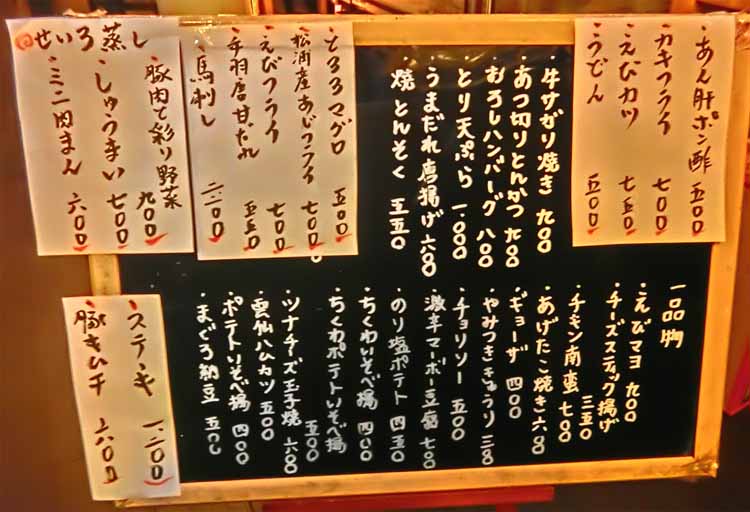 ・あん肝ポン酢 五〇〇
・カキフライ 七〇〇
・えびカツ 七五〇
・うどん 五〇〇
・牛サガリ焼き 九〇〇
・あつ切りとんかつ 九〇〇
・おろしハンバーグ 八〇〇
・とり天ぷら 一.〇〇〇
・うまだれ唐揚げ 六〇〇
・焼とんそく 五五〇
・とろろマグロ 五〇〇
・松浦産あじフライ 七〇〇
・えびフライ 七〇〇
・手羽唐甘だれ 五五〇
・馬刺し 二.二〇〇
せいろ蒸し
・豚肉と彩り野菜 九〇〇
・しゅうまい 七〇〇
・ミニ肉まん 六〇〇
一品物
・えびマヨ 九〇〇
・チーズスティック揚げ 三五〇
・チキン南蛮 七〇〇
・あげたこ焼き 六〇〇
・ギョーザ 四〇〇
・やみつききゅうり 三〇〇
・チョリソー 五〇〇
・激辛マーボー豆腐 七〇〇
・のり塩ポテト 四五〇
・ちくわいそべ揚 四〇〇
・ちくわポテトいそべ揚 五〇〇
・ツナチーズ玉子焼 六〇〇
・雲仙ハムカツ 五〇〇
・ポテトいそべ揚 四〇〇
・まぐろ納豆 五〇〇
・ステーキ 一.二〇〇
・豚キムチ 六〇〇